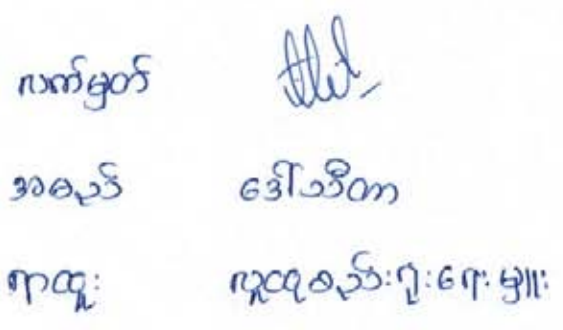 လက်မှတ်
အမည် ဒေါ်သီတာ
ရာထူး လူထုစည်းရုံးရေးမှူး